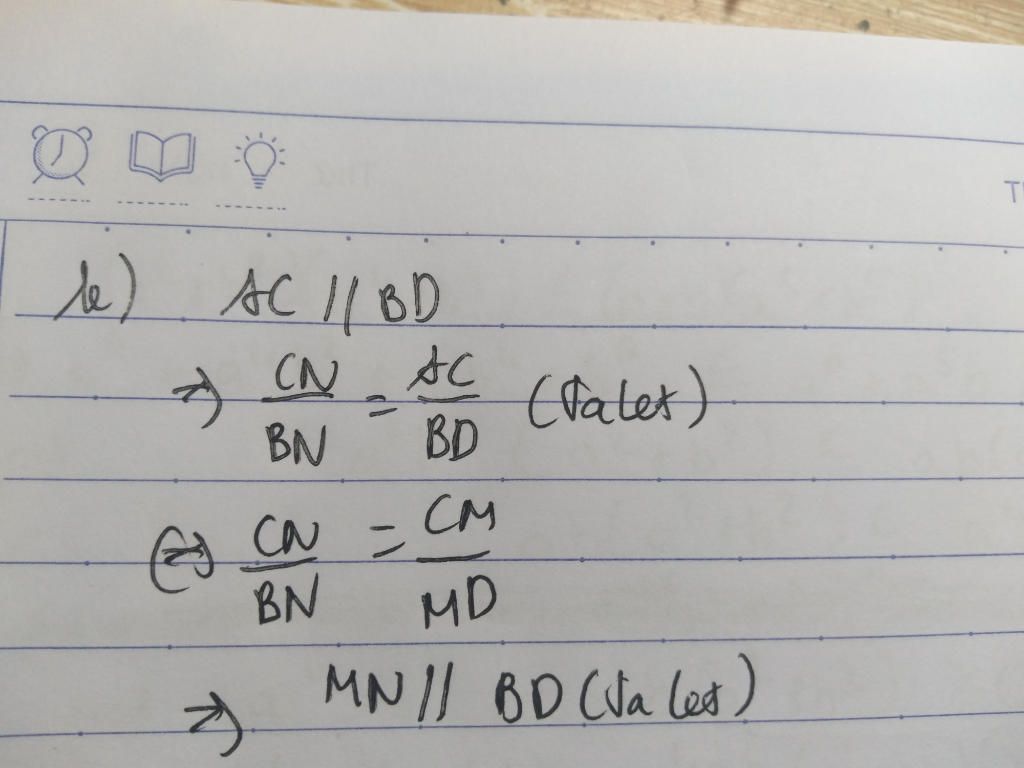 b) AC // BD
=> CN/BN = AC/BD (Talet)
<=> CN/BN = CM/MD
=> MN // BD (Talet)